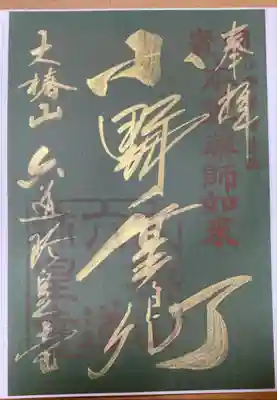 奉拝
薬師如来
小野篁卿
大椿山 六道珍皇寺